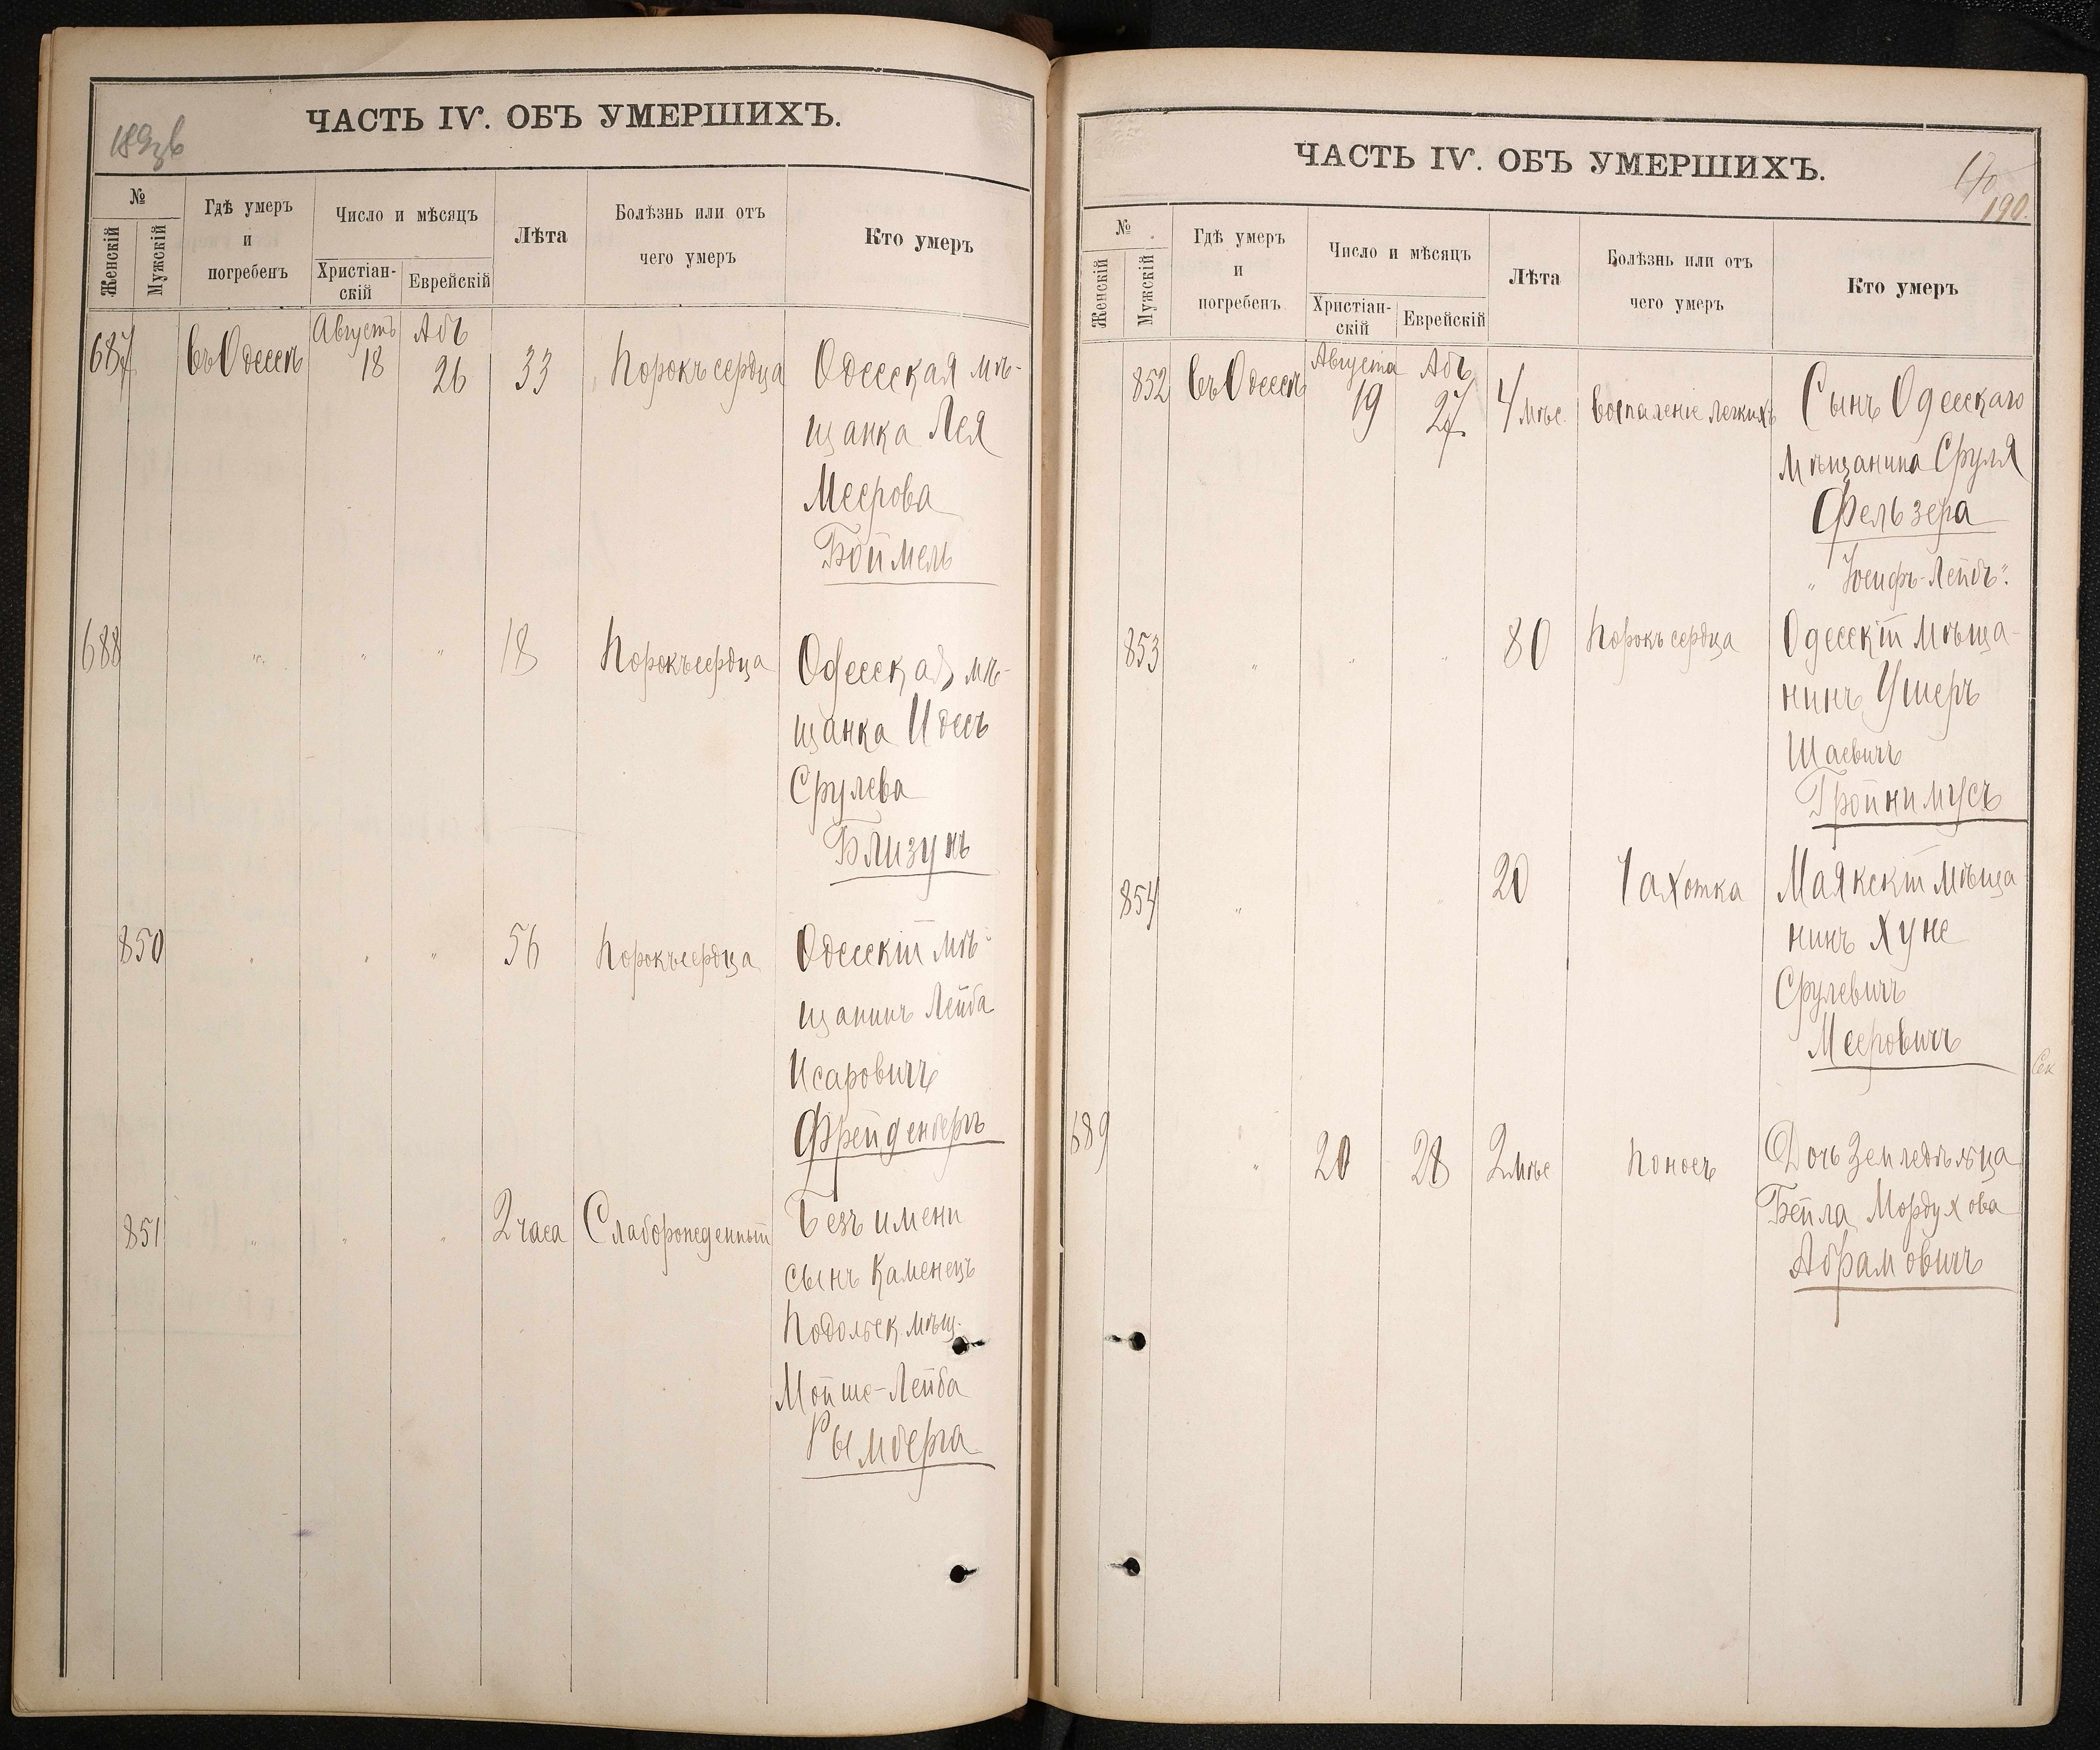 ЧАСТЬ IV. ОБЪ УМЕРШИХЪ.
№
Женскій
Мужскій
Гдѣ умеръ
и
погребенъ
Число и мѣсяцъ
Христіан-
скій
Еврейскій
Лѣта
Болѣзнь или отъ
чего умеръ
Кто умеръ
687 въ Одессѣ Августъ 18 Абъ 26 33 Порокъ сердца Одесская мѣ-
щанка Лея
Меерова
Боймель
688 " " " 18 Порокъ сердца Одесская мѣ-
щанка Идесъ
Срулева
Близунъ
850 " " " 56 Порокъ сердца Одесскій мѣ-
щанинъ Лейба
Исаровичъ
Фрейденбергъ
851 " " " 2 часа Слаборожденный Безъ имени
сынъ Каменецъ
Подольск. мѣщ.
Мойше-Лейба
Рымберга
ЧАСТЬ IV. ОБЪ УМЕРШИХЪ.
190.
№
Женскій
Мужскій
Гдѣ умеръ
и
погребенъ
Число и мѣсяцъ
Христіан-
скій
Еврейскій
Лѣта
Болѣзнь или отъ
чего умеръ
Кто умеръ
852 въ Одессѣ Августа 19 Абъ 27 4 мѣс. Воспаленіе легкихъ Сынъ Одесскаго
мѣщанина Сруля
Фельзера
"Іосифъ-Лейбъ".
853 " " " 80 Порокъ сердца Одесскій мѣща-
нинъ Ушеръ
Шаевичъ
Гройнимусъ
854 " " " 20 Чахотка Маякскій мѣща
нинъ Хуне
Срулевичъ
Мееровичъ
689 " 20 28 2 мѣс Поносъ Дочь Земледѣльца
Бейла Мордухова
Абрамовичъ